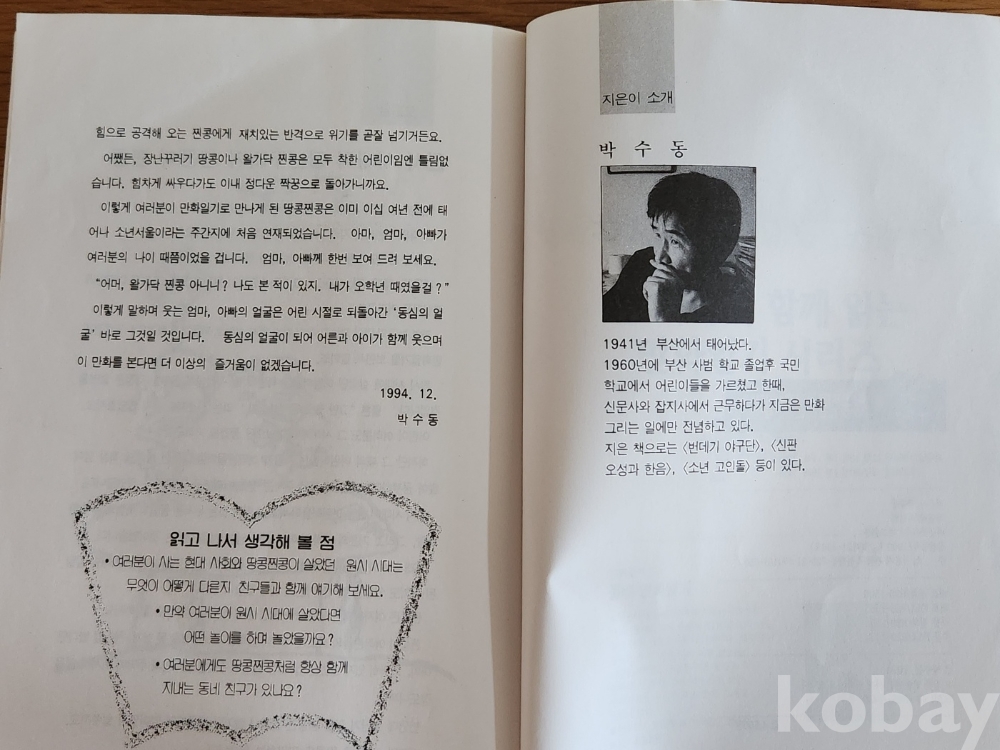 힘으로 공격해 오는 찐콩에게 재치있는 반격으로 위기를 곧잘 넘기거든요.
어쨌든, 장난꾸러기 땅콩이나 왈가닥 찐콩은 모두 착한 어린이임엔 틀림없
습니다. 힘차게 싸우다가도 이내 정다운 짝꿍으로 돌아가니까요.
이렇게 여러분이 만화일기로 만나게 된 땅콩찐콩은 이미 이십 여년 전에 태
어나 소년서울이라는 주간지에 처음 연재되었습니다. 아마, 엄마, 아빠가
여러분의 나이 때쯤이었을 겁니다. 엄마, 아빠께 한번 보여 드려 보세요.
“어머, 왈가닥 찐콩 아니니? 나도 본 적이 있지. 내가 오학년 때였을걸?”
이렇게 말하며 웃는 엄마, 아빠의 얼굴은 어린 시절로 되돌아간 ‘동심의 얼
굴’ 바로 그것일 것입니다. 동심의 얼굴이 되어 어른과 아이가 함께 웃으며
이 만화를 본다면 더 이상의 즐거움이 없겠습니다.
1994. 12.
박수동
읽고 나서 생각해 볼 점
• 여러분이 사는 현대 사회와 땅콩찐콩이 살았던 원시 시대는
무엇이 어떻게 다른지 친구들과 함께 얘기해 보세요.
• 만약 여러분이 원시 시대에 살았다면
어떤 놀이를 하며 놀았을까요?
• 여러분에게도 땅콩찐콩처럼 항상 함께
지내는 동네 친구가 있나요?
지은이 소개
박 수 동
1941년 부산에서 태어났다.
1960년에 부산 사범 학교 졸업후 국민
학교에서 어린이들을 가르쳤고 한때,
신문사와 잡지사에서 근무하다가 지금은 만화
그리는 일에만 전념하고 있다.
지은 책으로는 〈번데기 야구단〉, 〈신판
오성과 한음〉, 〈소년 고인돌〉 등이 있다.
kobay